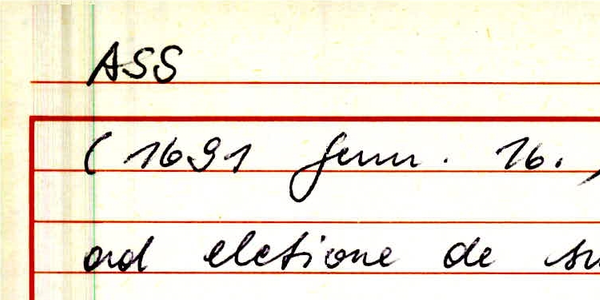 ASS
(1691 Genn. 16.)
ad eletione de